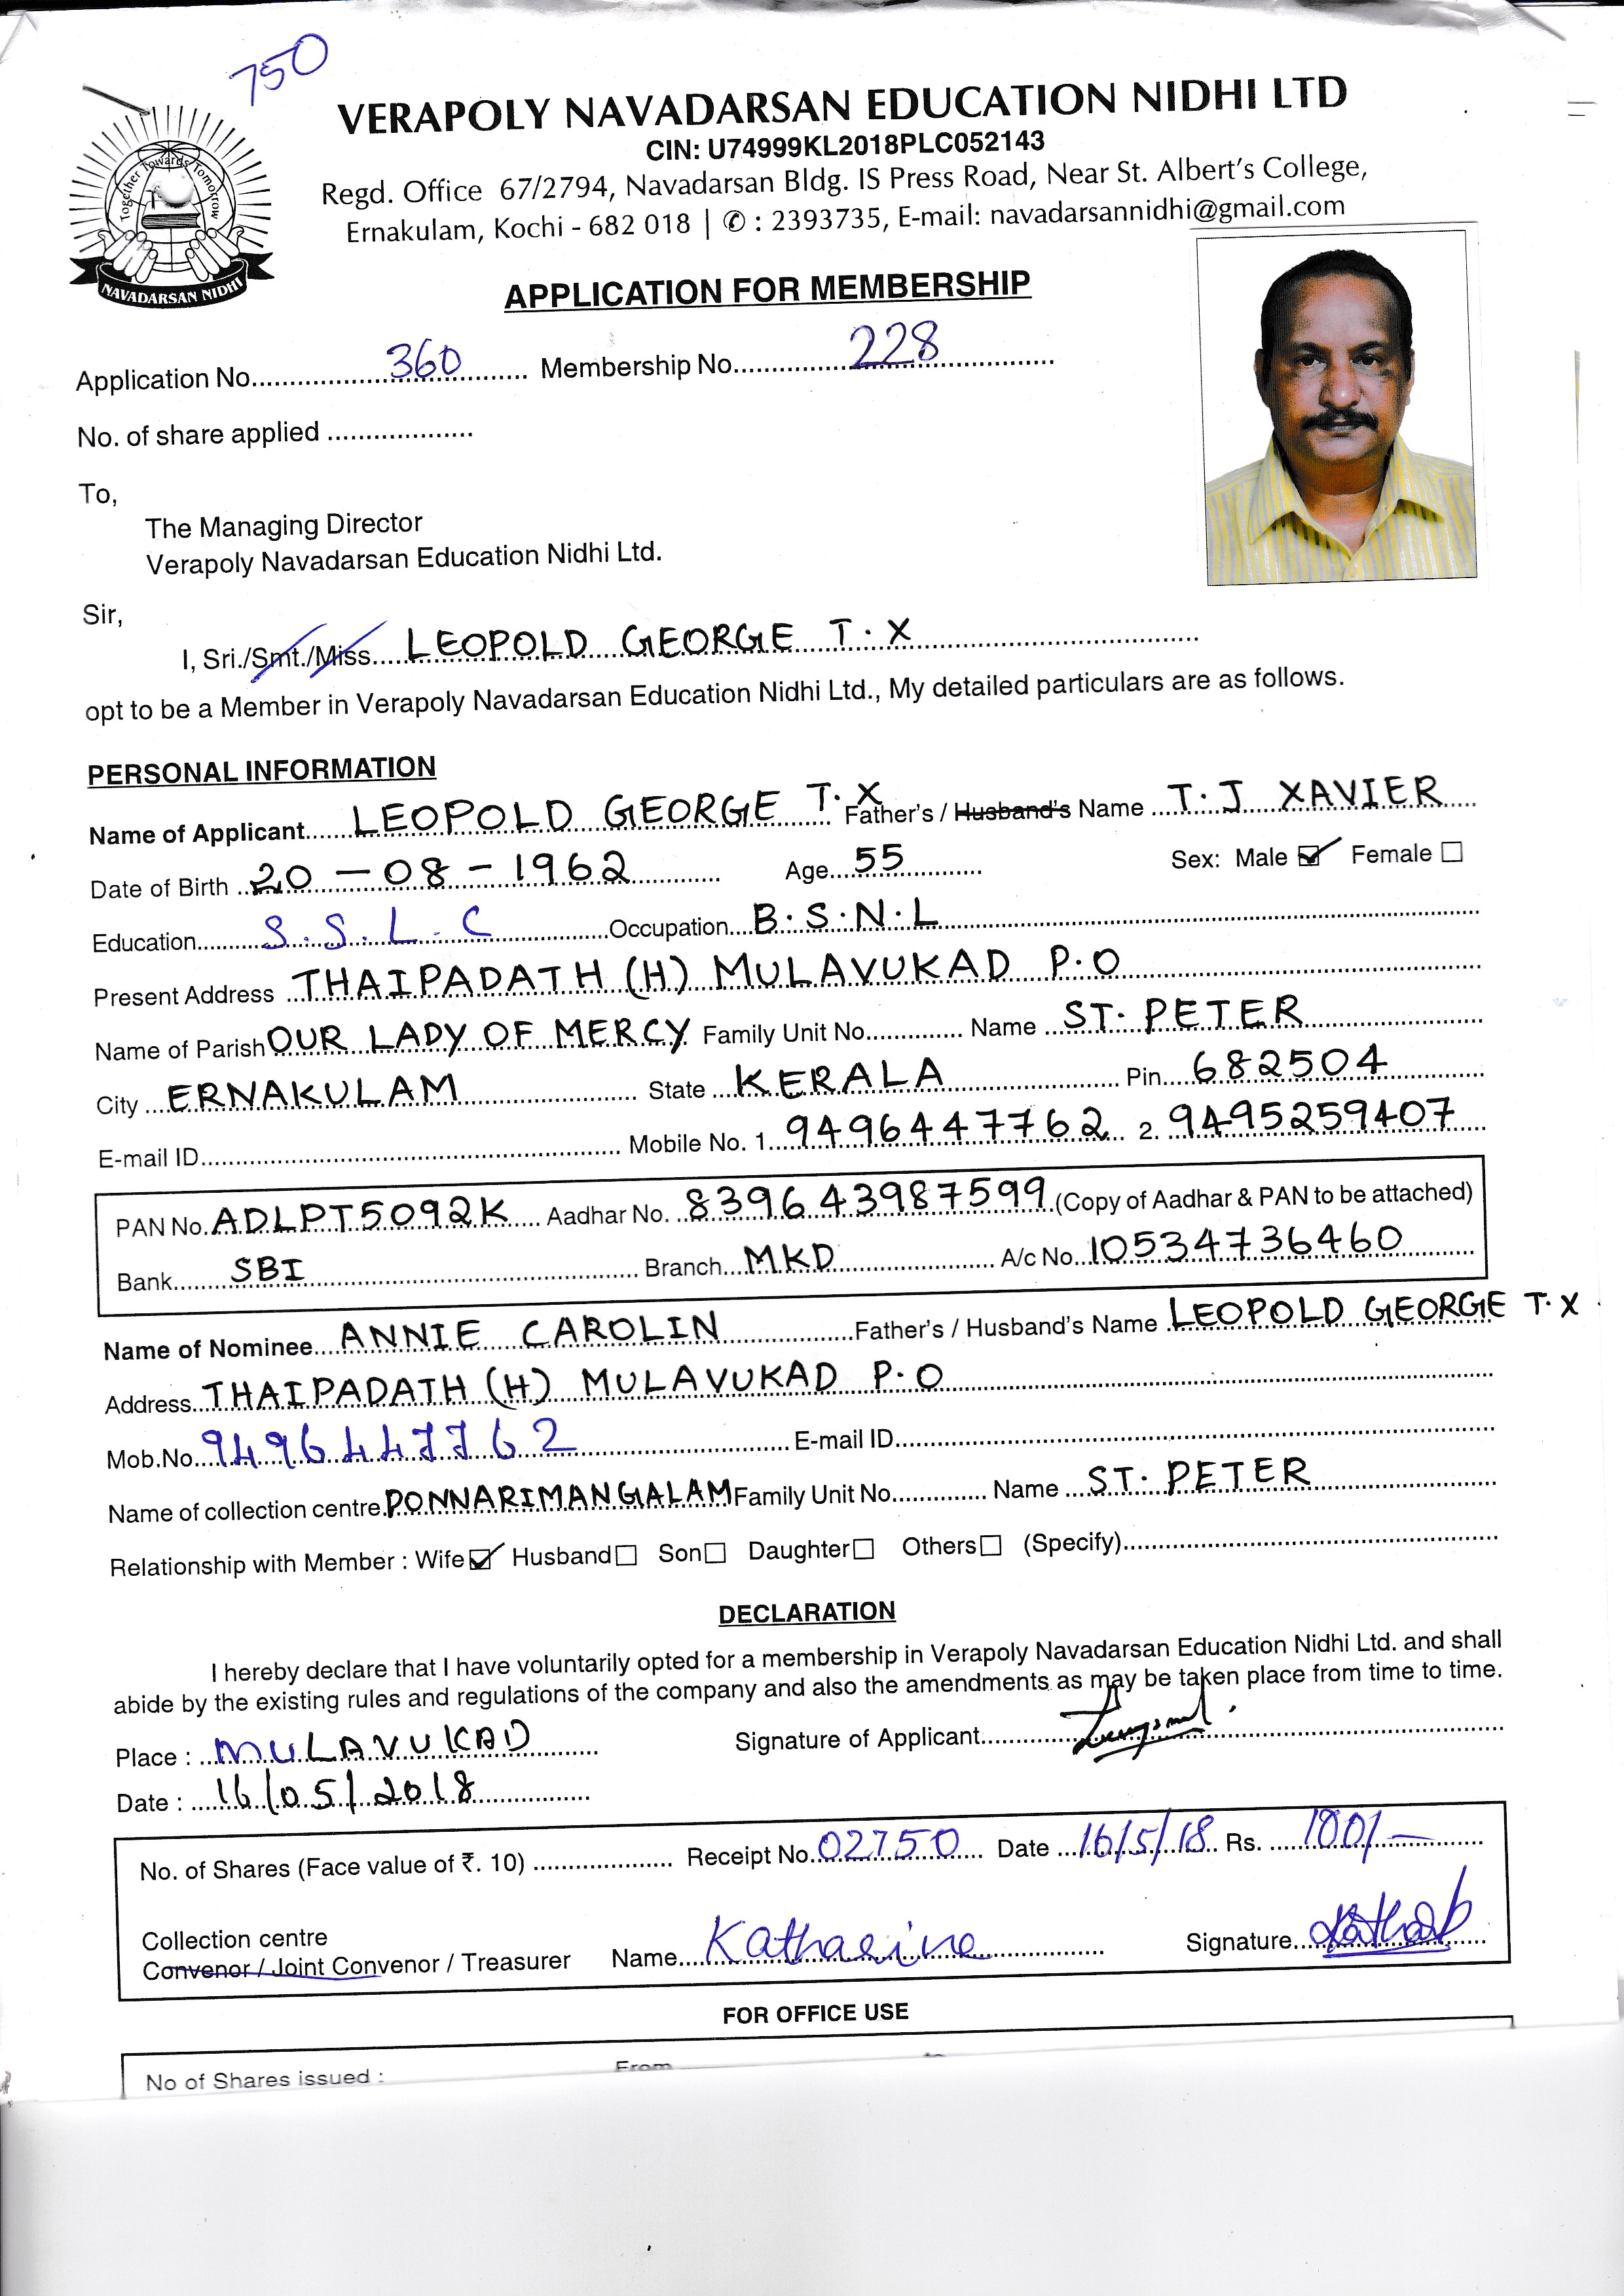 750
VERAPOLY NAVADARSAN EDUCATION NIDHI LTD
CIN: U74999KL2018PLC052143
Regd. Office 67/2794, Navadarsan Bldg. IS Press Road, Near St. Albert's College,
Ernakulam, Kochi - 682 018 | ✆ : 2393735, E-mail: navadarsannidhi@gmail.com
Together Towards Tomorrow
NAVADARSAN NIDHI
APPLICATION FOR MEMBERSHIP
Application No. 360 Membership No. 228
No. of share applied
To,
The Managing Director
Verapoly Navadarsan Education Nidhi Ltd.
Sir,
I, Sri./Smt./Miss LEOPOLD GEORGE T.X
opt to be a Member in Verapoly Navadarsan Education Nidhi Ltd., My detailed particulars are as follows.
PERSONAL INFORMATION
Name of Applicant LEOPOLD GEORGE T.X Father's / Husband's Name T.J XAVIER
Date of Birth 20-08-1962 Age 55 Sex: Male ☑ Female ☐
Education S.S.L.C Occupation B.S.N.L
Present Address THAIPADATH (H) MULAVUKAD P.O
Name of Parish OUR LADY OF MERCY Family Unit No. Name ST. PETER
City ERNAKULAM State KERALA Pin 682504
E-mail ID Mobile No. 1. 9496447762 2. 9495259407
PAN No. ADLPT5092K Aadhar No. 839643987599 (Copy of Aadhar & PAN to be attached)
Bank SBI Branch MKD A/c No. 10534736460
Name of Nominee ANNIE CAROLIN Father's / Husband's Name LEOPOLD GEORGE T.X
Address THAIPADATH (H) MULAVUKAD P.O
Mob.No. 9496447762 E-mail ID
Name of collection centre PONNARIMANGALAM Family Unit No. Name ST. PETER
Relationship with Member : Wife ☑ Husband ☐ Son ☐ Daughter ☐ Others ☐ (Specify)
DECLARATION
I hereby declare that I have voluntarily opted for a membership in Verapoly Navadarsan Education Nidhi Ltd. and shall
abide by the existing rules and regulations of the company and also the amendments as may be taken place from time to time.
Place : MULAVUKAD Signature of Applicant
Date : 16/05/2018
No. of Shares (Face value of ₹. 10) Receipt No. 02750 Date 16/5/18 Rs. 100/-
Collection centre
Convenor / Joint Convenor / Treasurer Name Katharine Signature
FOR OFFICE USE
No of Shares issued : From to